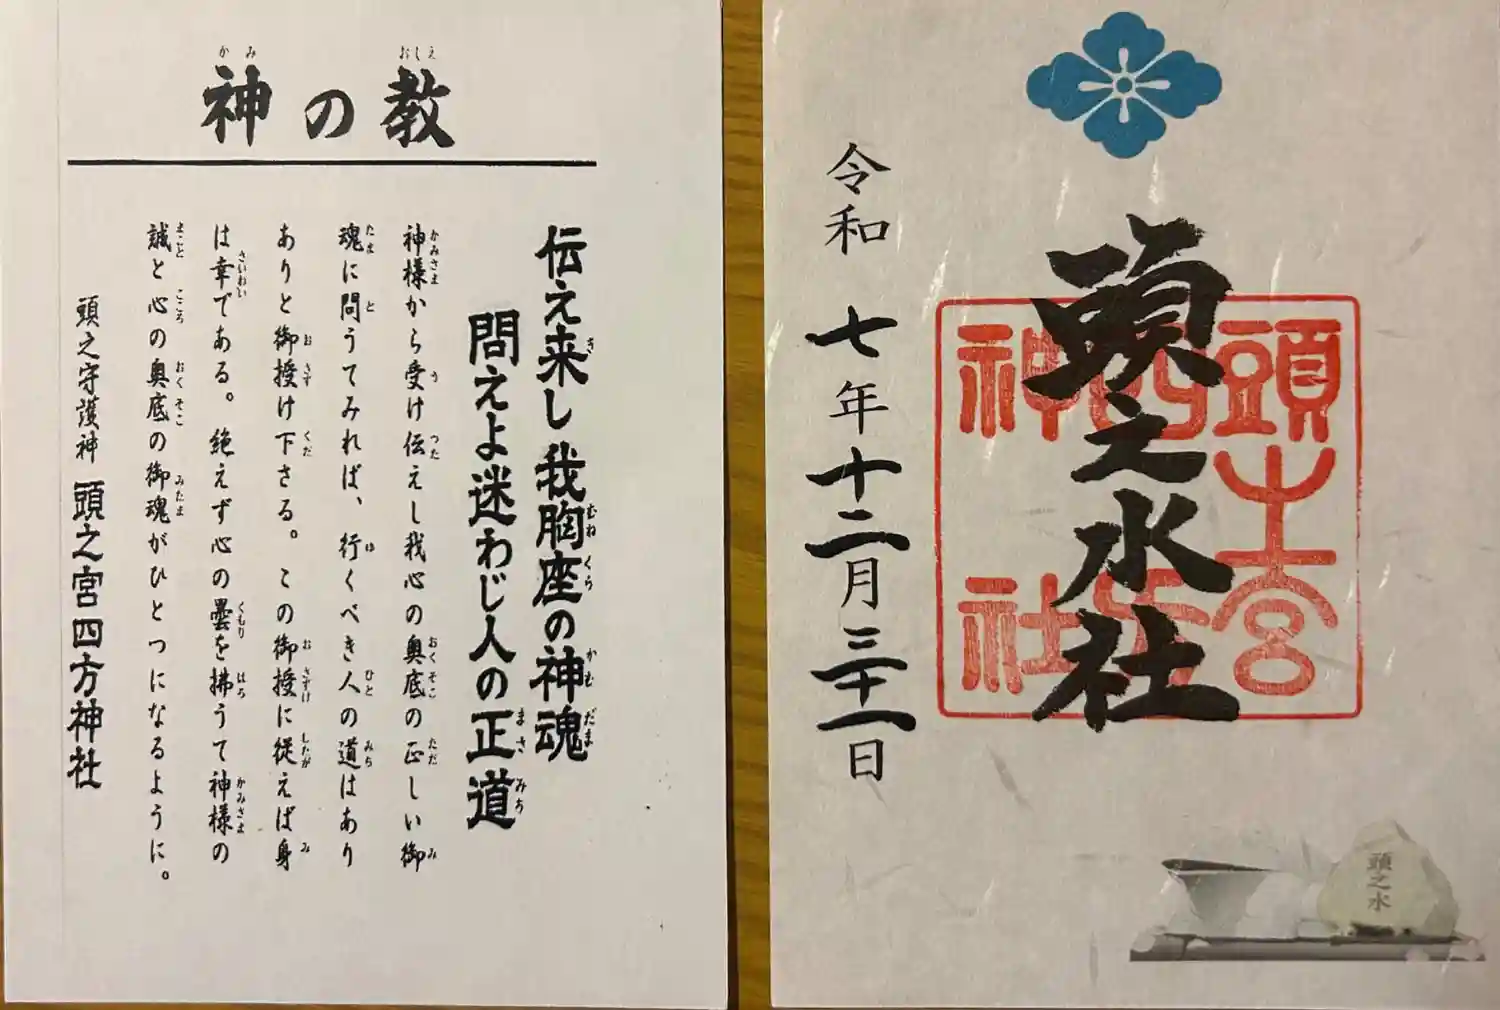 神の教
伝え来し我胸座の神魂
問えよ迷わじ人の正道
神様から受け伝えし我心の奥底の正しい御
魂に問うてみれば、行くべき人の道はあり
ありと御授け下さる。この御授に従えば身
は幸である。絶えず心の曇を拂うて神様の
誠と心の奥底の御魂がひとつになるように。
頭之守護神 頭之宮四方神社
頭之水社
令和 七年十二月三十一日
頭之宮
四方
神社
頭之水